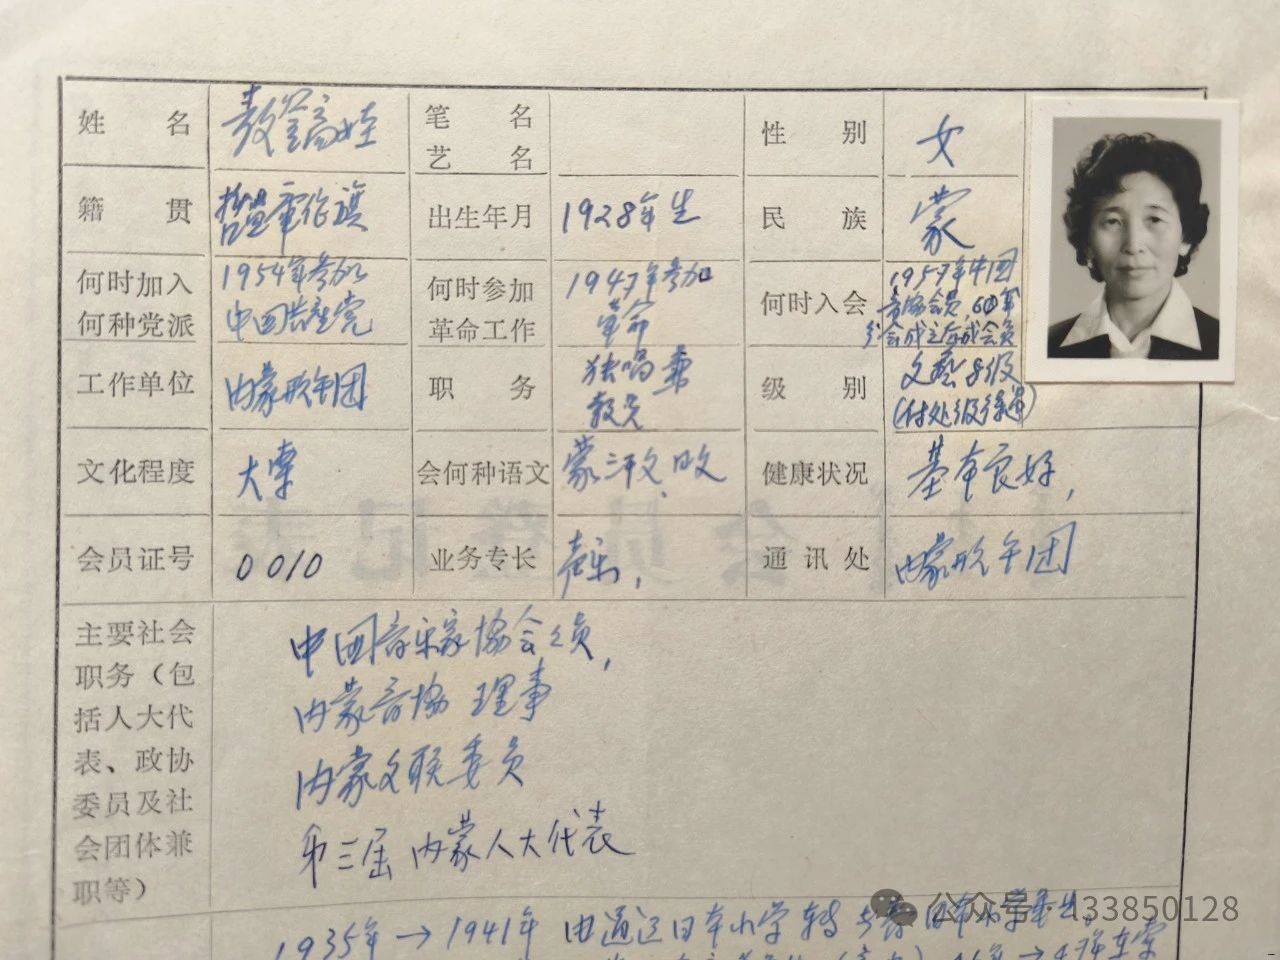 姓 名 敖登高娃 笔 名 艺 名 性 别 女
籍 贯 哲盟 出生年月 1928年生 民 族 蒙
何时加入何种党派 1954年参加中国共产党 何时参加革命工作 1947年参加革命 何时入会 1957年中国音协会员,60年分会成立后成会员
工作单位 内蒙歌午团 职 务 独唱兼教员 级 别 文艺8级
文化程度 大学 会何种语文 蒙汉文、日文 健康状况 基本良好,
会员证号 0010 业务专长 声乐, 通 讯 处 内蒙歌午团
主要社会
职务(包
括人大代
表、政协
委员及社
会团体兼
职等)
中国音乐家协会会员,
内蒙音协 理事
内蒙文联委员
第三届 内蒙人大代表
1935年→1941年 由通辽日本小学转
公众号 · 133850128